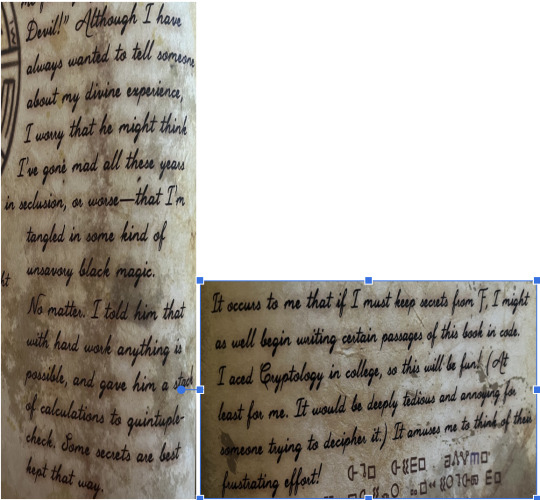 Devil!" Although I have
always wanted to tell someone
about my divine experience,
I worry that he might think
I've gone mad all these years
in seclusion, or worse—that I'm
tangled in some kind of
unsavory black magic.
No matter. I told him that
with hard work anything is
possible, and gave him a stack
of calculations to quintuple-
check. Some secrets are best
kept that way.
It occurs to me that if I must keep secrets from F, I might
as well begin writing certain passages of this book in code.
I aced Cryptology in college, so this will be fun! (At
least for me. It would be deeply tedious and annoying for
someone trying to decipher it.) It amuses me to think of their
frustrating effort!